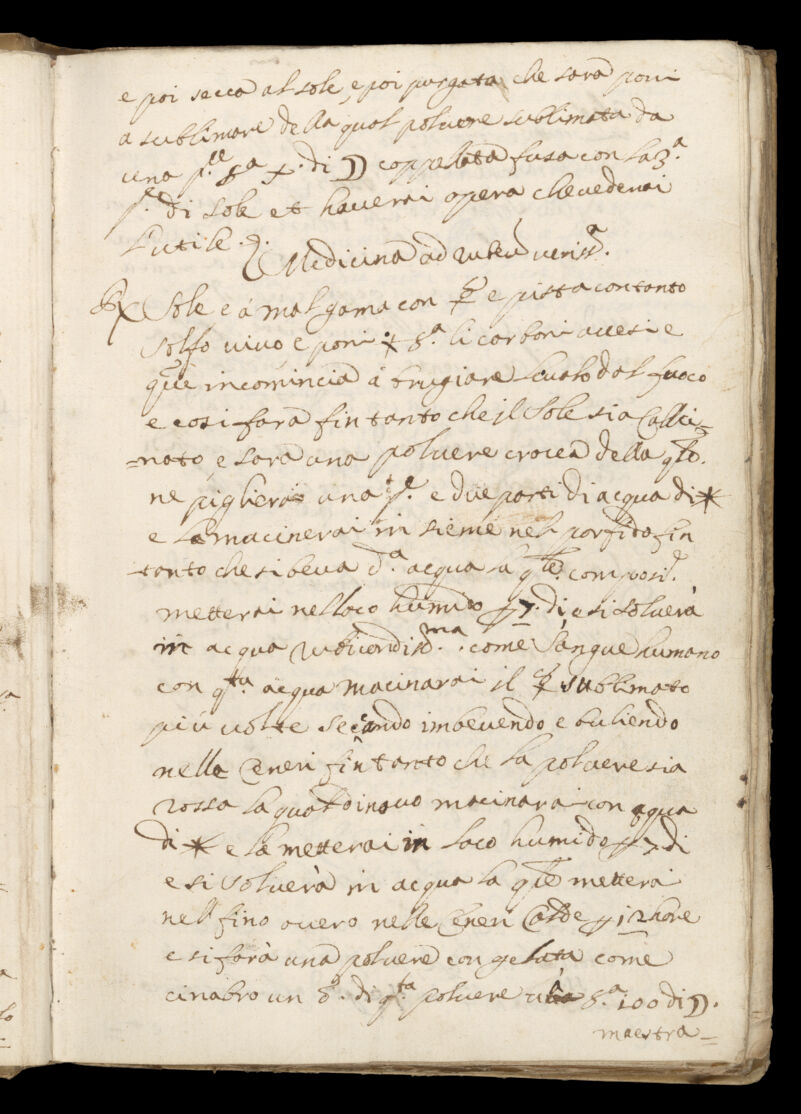 e poi secca al sole, e poi purgata che sarà poni
a sublimare della qual polvere sublimata da
una p.te s.a x. di ☽ coppellata fusa con la 3.a
p.e di sole et haverai opera che vederai
l'utile.
Medicina ad rubeū veriss.a
℞ Sole e amalgama con ☿ e pista con tanto
solfo vivo e poni s.a li carboni accesi e
que incomincia à brugiare levalo dal fuoco
e cosi farà fin tanto che il Sole sia Calci=
=nato, e sarà una polvere crocea della q.le
ne piglierai una p.e e due parti di acqua di ✶
e la macinerai in sieme nel porfido fin
tanto che si beva d.a acqua la q.le composi.e
metterai nel loco humido p 7. di, e si solverà
in acqua rubicondiss.ma come Sangue humano
con q.ta acqua macinarai il ☿ sublimato
più volte secando imbevendo e buliendo
nelle Ceneri fin tanto che la polvere sia
rossa la qual di novo macinarai con aqua
di ✶ e la metterai in loco humido p 7 di
e si solverà in acqua la q.le metterai
nel fino overo nelle Ceneri Calde p 12 hore
e si farà una polvere congelata come
cinabro un 8. di q.ta polvere s.a 100 di ☽.
maestra=